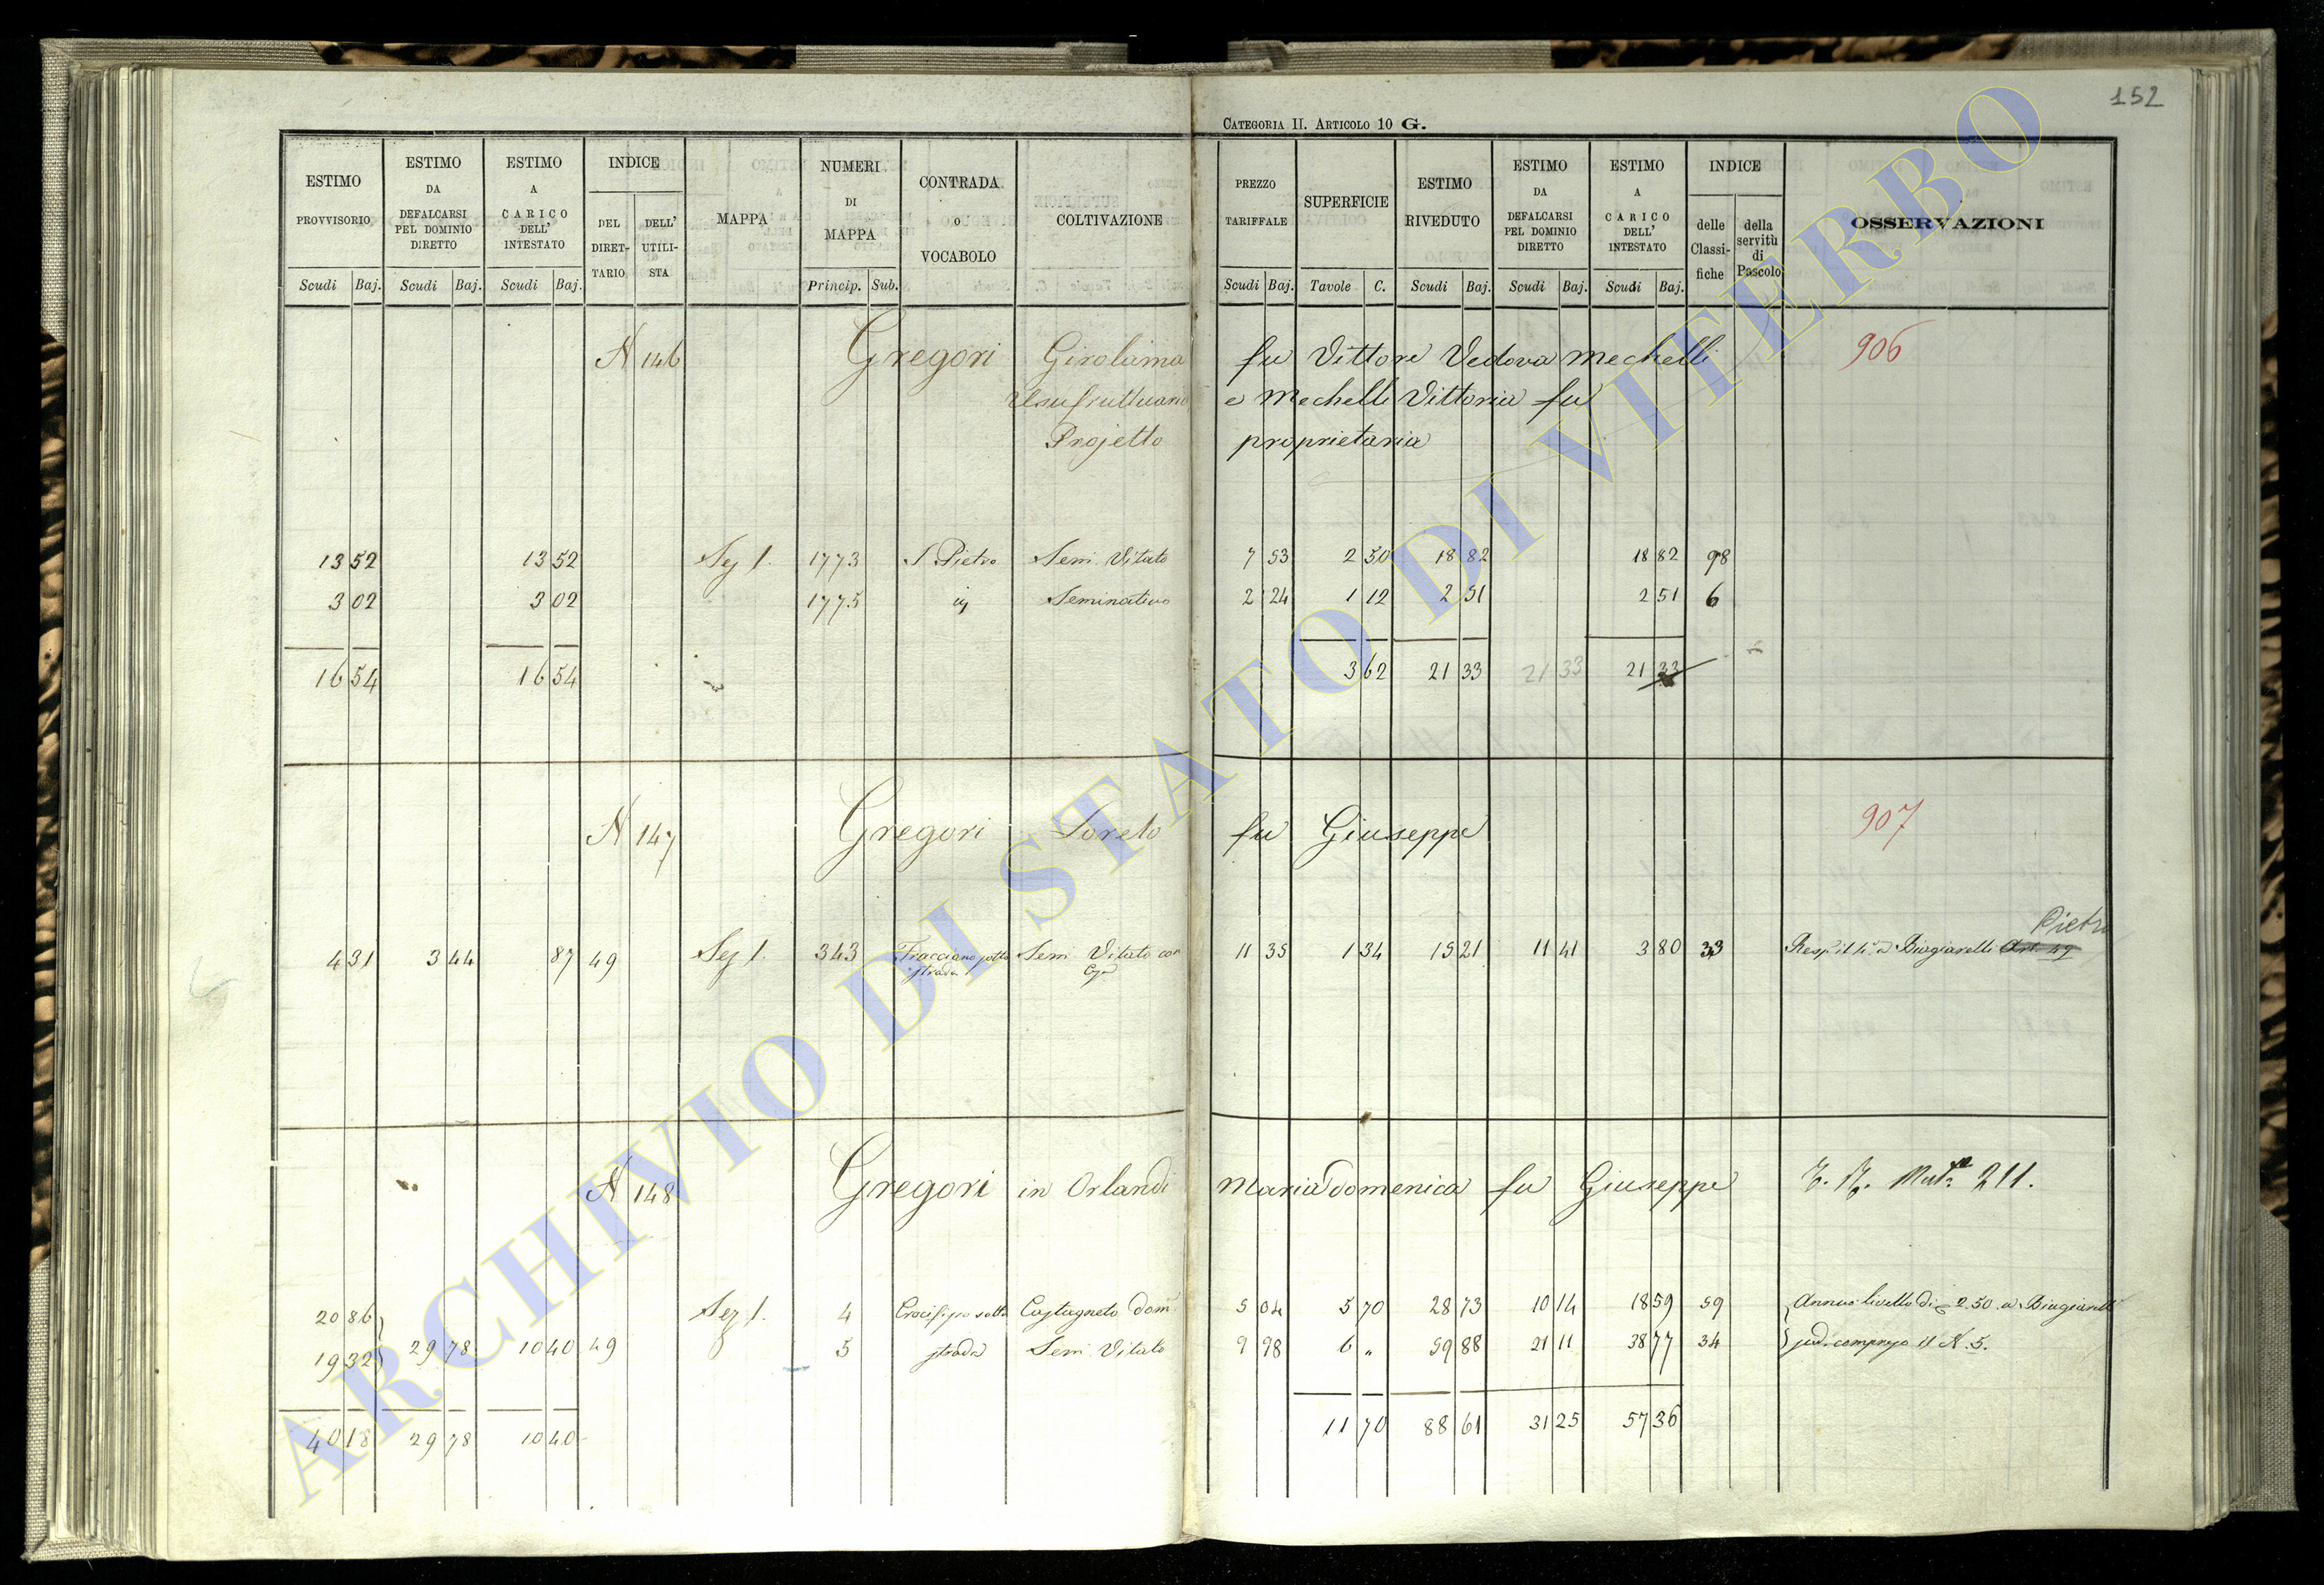 152
CATEGORIA II. ARTICOLO 10 G.
ESTIMO PROVVISORIO Scudi Baj.
ESTIMO DA DEFALCARSI PEL DOMINIO DIRETTO Scudi Baj.
ESTIMO A CARICO DELL' INTESTATO Scudi Baj.
INDICE DEL DIRET-TARIO DELL' UTILI-STA
MAPPA
NUMERI DI MAPPA Princip. Sub.
CONTRADA o VOCABOLO
COLTIVAZIONE
PREZZO TARIFFALE Scudi Baj.
SUPERFICIE Tavole C.
ESTIMO RIVEDUTO Scudi Baj.
ESTIMO DA DEFALCARSI PEL DOMINIO DIRETTO Scudi Baj.
ESTIMO A CARICO DELL' INTESTATO Scudi Baj.
INDICE delle Classi-fiche della servitù di Pascolo
OSSERVAZIONI
N 146 Gregori Girolama fu Vittore Vedova Mechelli 906
Usufruttuaria e Mechelli Vittoria fu
Projetto proprietaria
13 52 13 52 Sez 1. 1773 S Pietro Sem. Vitato 7 53 2 50 18 82 18 82 98
3 02 3 02 1775 Seminativo 2 24 1 12 2 51 2 51 6
16 54 16 54 3 62 21 33 21 33 21 33
N 147 Gregori Loreto fu Giuseppe 907
Pietro
4 31 3 44 87 49 Sez 1. 343 Fracciano sotto strada Sem Vitato con 11 35 1 34 15 21 11 41 3 80 33 Biagiarelli Art. 49
N 148 Gregori in Orlandi Mariadomenica fu Giuseppe 211.
20 86 Sez 1. 4 Crocifisso sotto Castagneto Dom. 5 04 5 70 28 73 10 14 18 59 59 Annuo livello di 2.50 a Biagiarelli
19 32 29 78 10 40 49 5 strada Sem. Vitato 9 98 6 " 59 88 21 11 38 77 34 compreso il N. 5.
40 18 29 78 10 40 11 70 88 61 31 25 57 36
ARCHIVIO DI STATO DI VITERBO